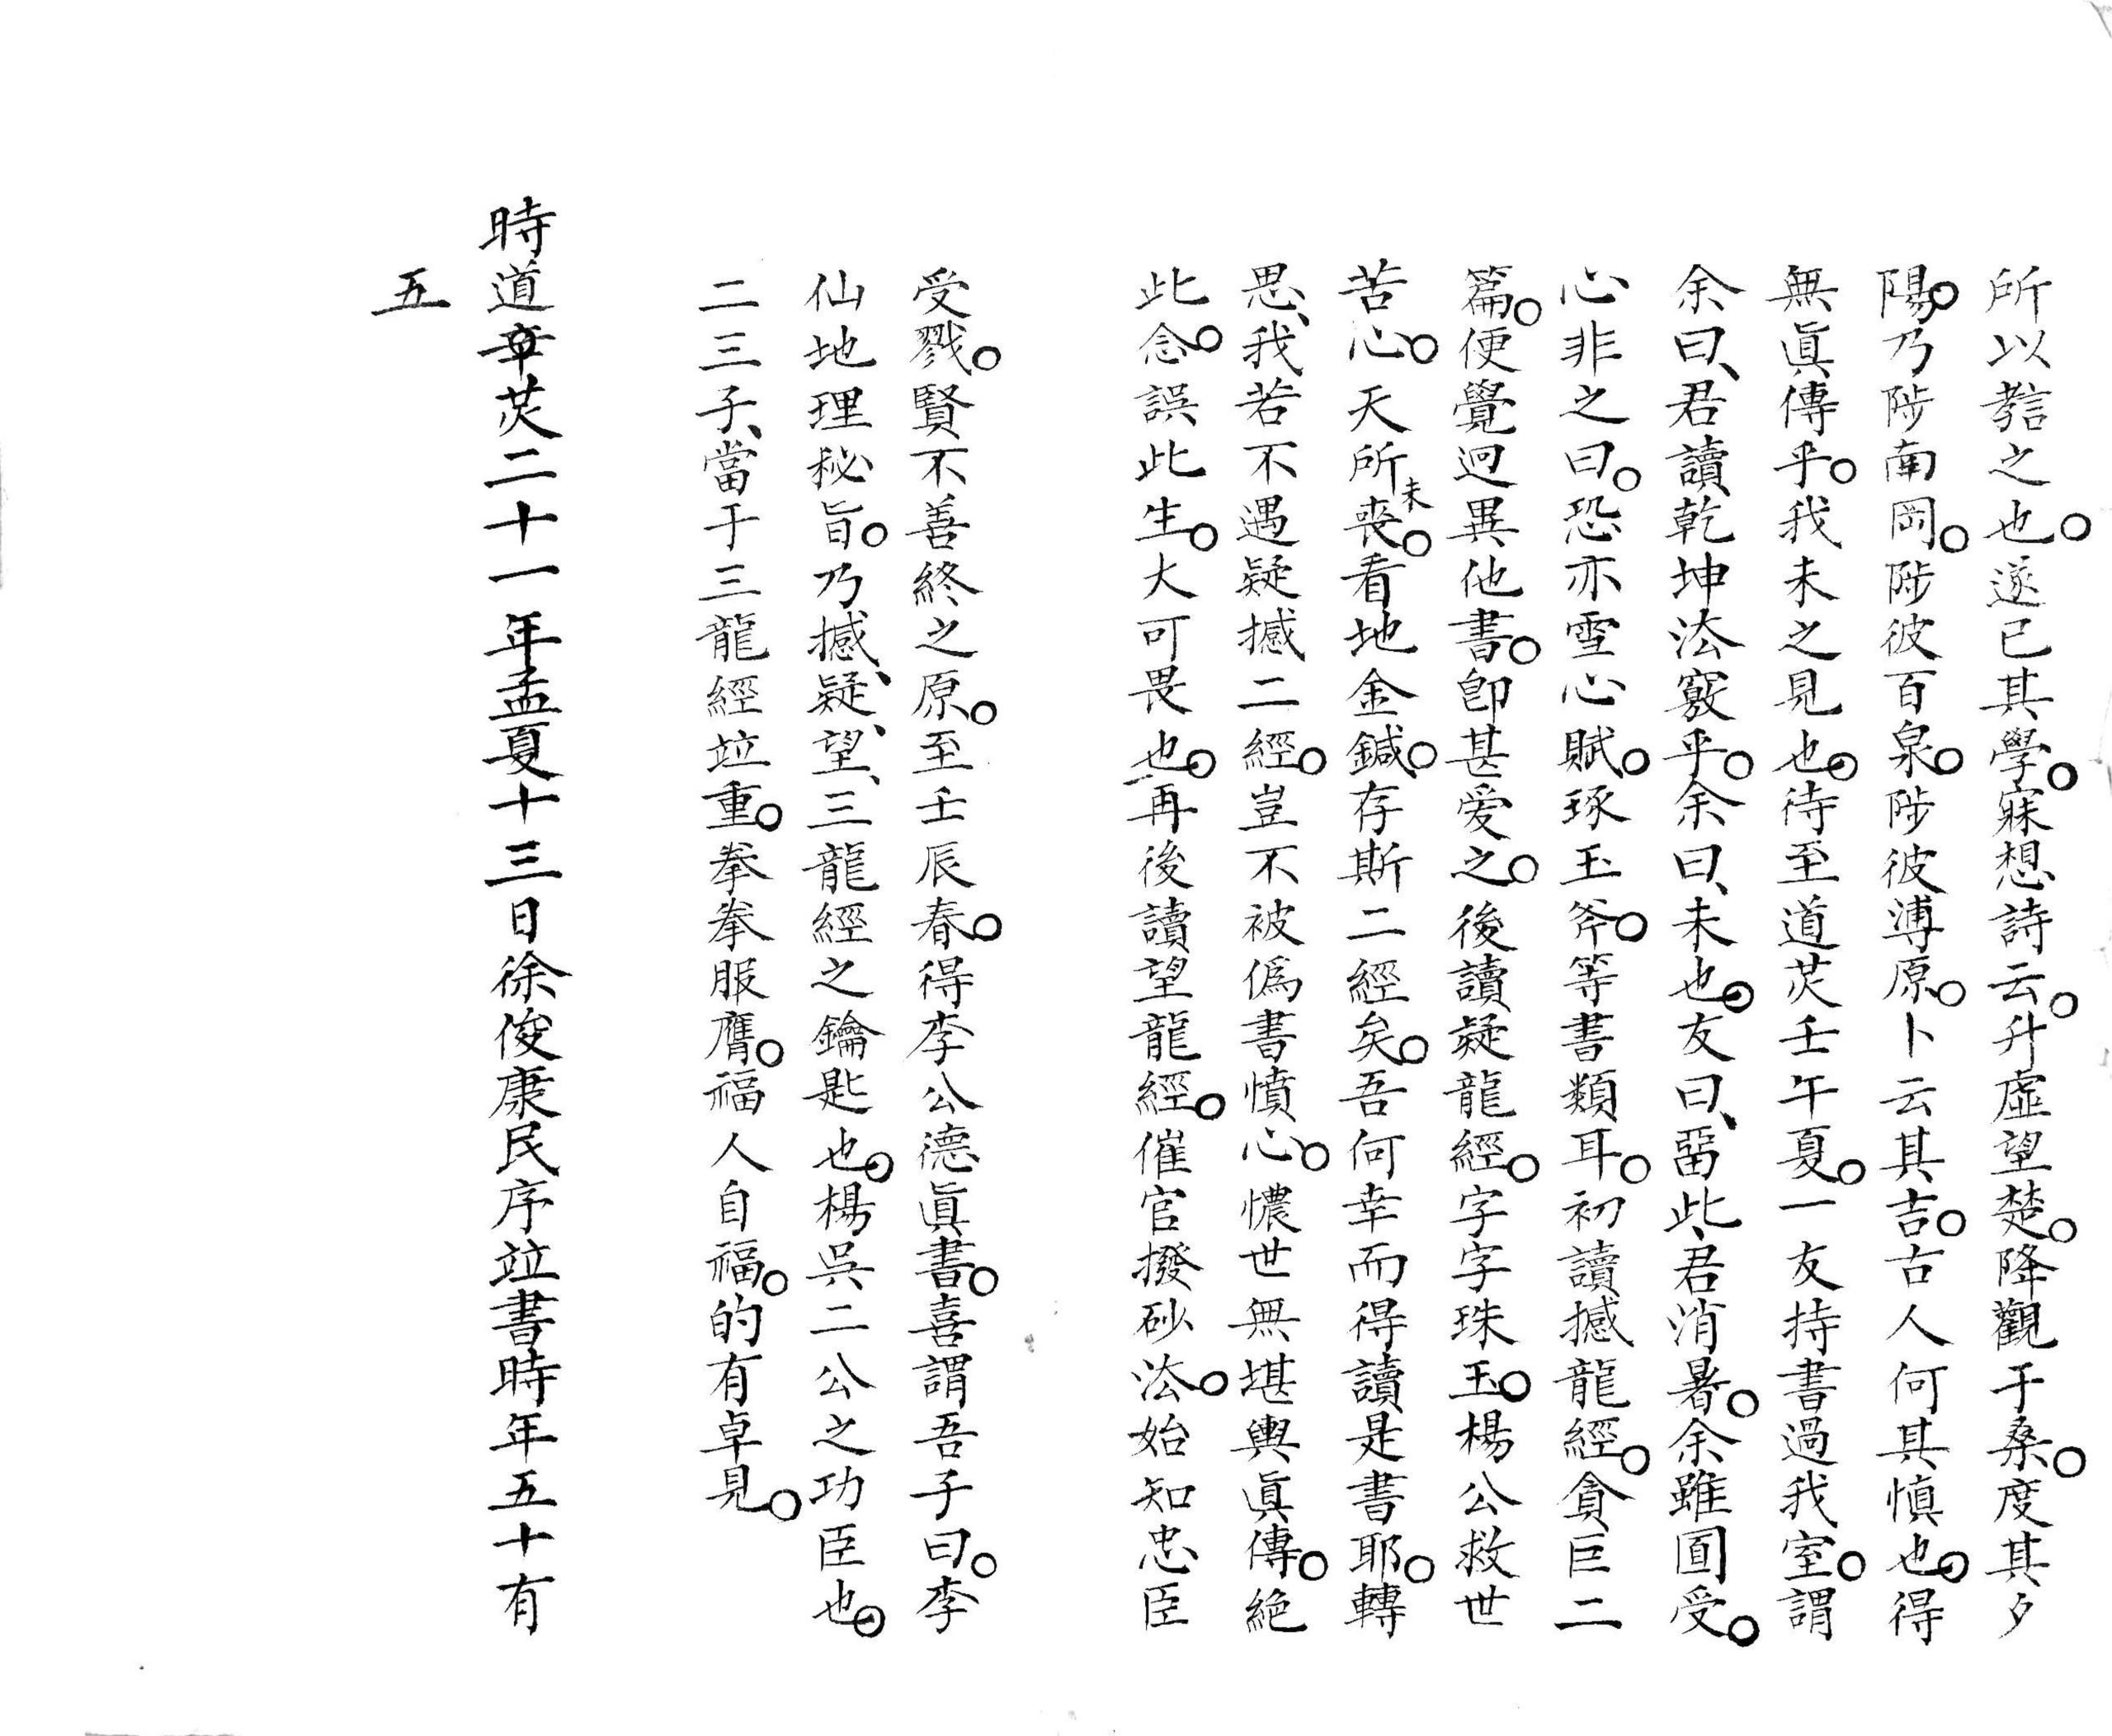 所以嚭之也。遂已其學。寐想詩云。升虛望楚。降觀于桑。度其夕
陽。乃陟南岡。陟彼百泉。陟彼溥原。卜云其吉。古人何其慎也。得
無眞傳乎。我未之見也。待至道炗壬午夏。一友持書過我室。謂
余曰、君讀乾坤法竅乎。余曰、未也。友曰、畱此、君消暑。余雖圓受。
心非之曰。恐亦雪心賦。琢玉斧。等書類耳。初讀撼龍經。貪巨二
篇。便覺迥異他書。卽甚爱之。後讀疑龍經。字字珠玉。楊公救世
苦心。天所未丧。看地金鍼。存斯二經矣。吾何幸而得讀是書耶。轉
思、我若不遇疑撼二經。豈不被僞書憤心。憹世無堪輿眞傳。絕
此念。誤此生。大可畏也。再後讀望龍經。催官撥砂法。始知忠臣
受戮。賢不善終之原。至壬辰春。得李公德眞書。喜謂吾子曰。李
仙地理秘旨。乃撼、疑、望、三龍經之鑰匙也。楊吳二公之功臣也。
二三子、當于三龍經竝重。拳拳服膺。福人自福。的有卓見。
時道炗二十一年孟夏十三日徐俊康民序竝書時年五十有
五